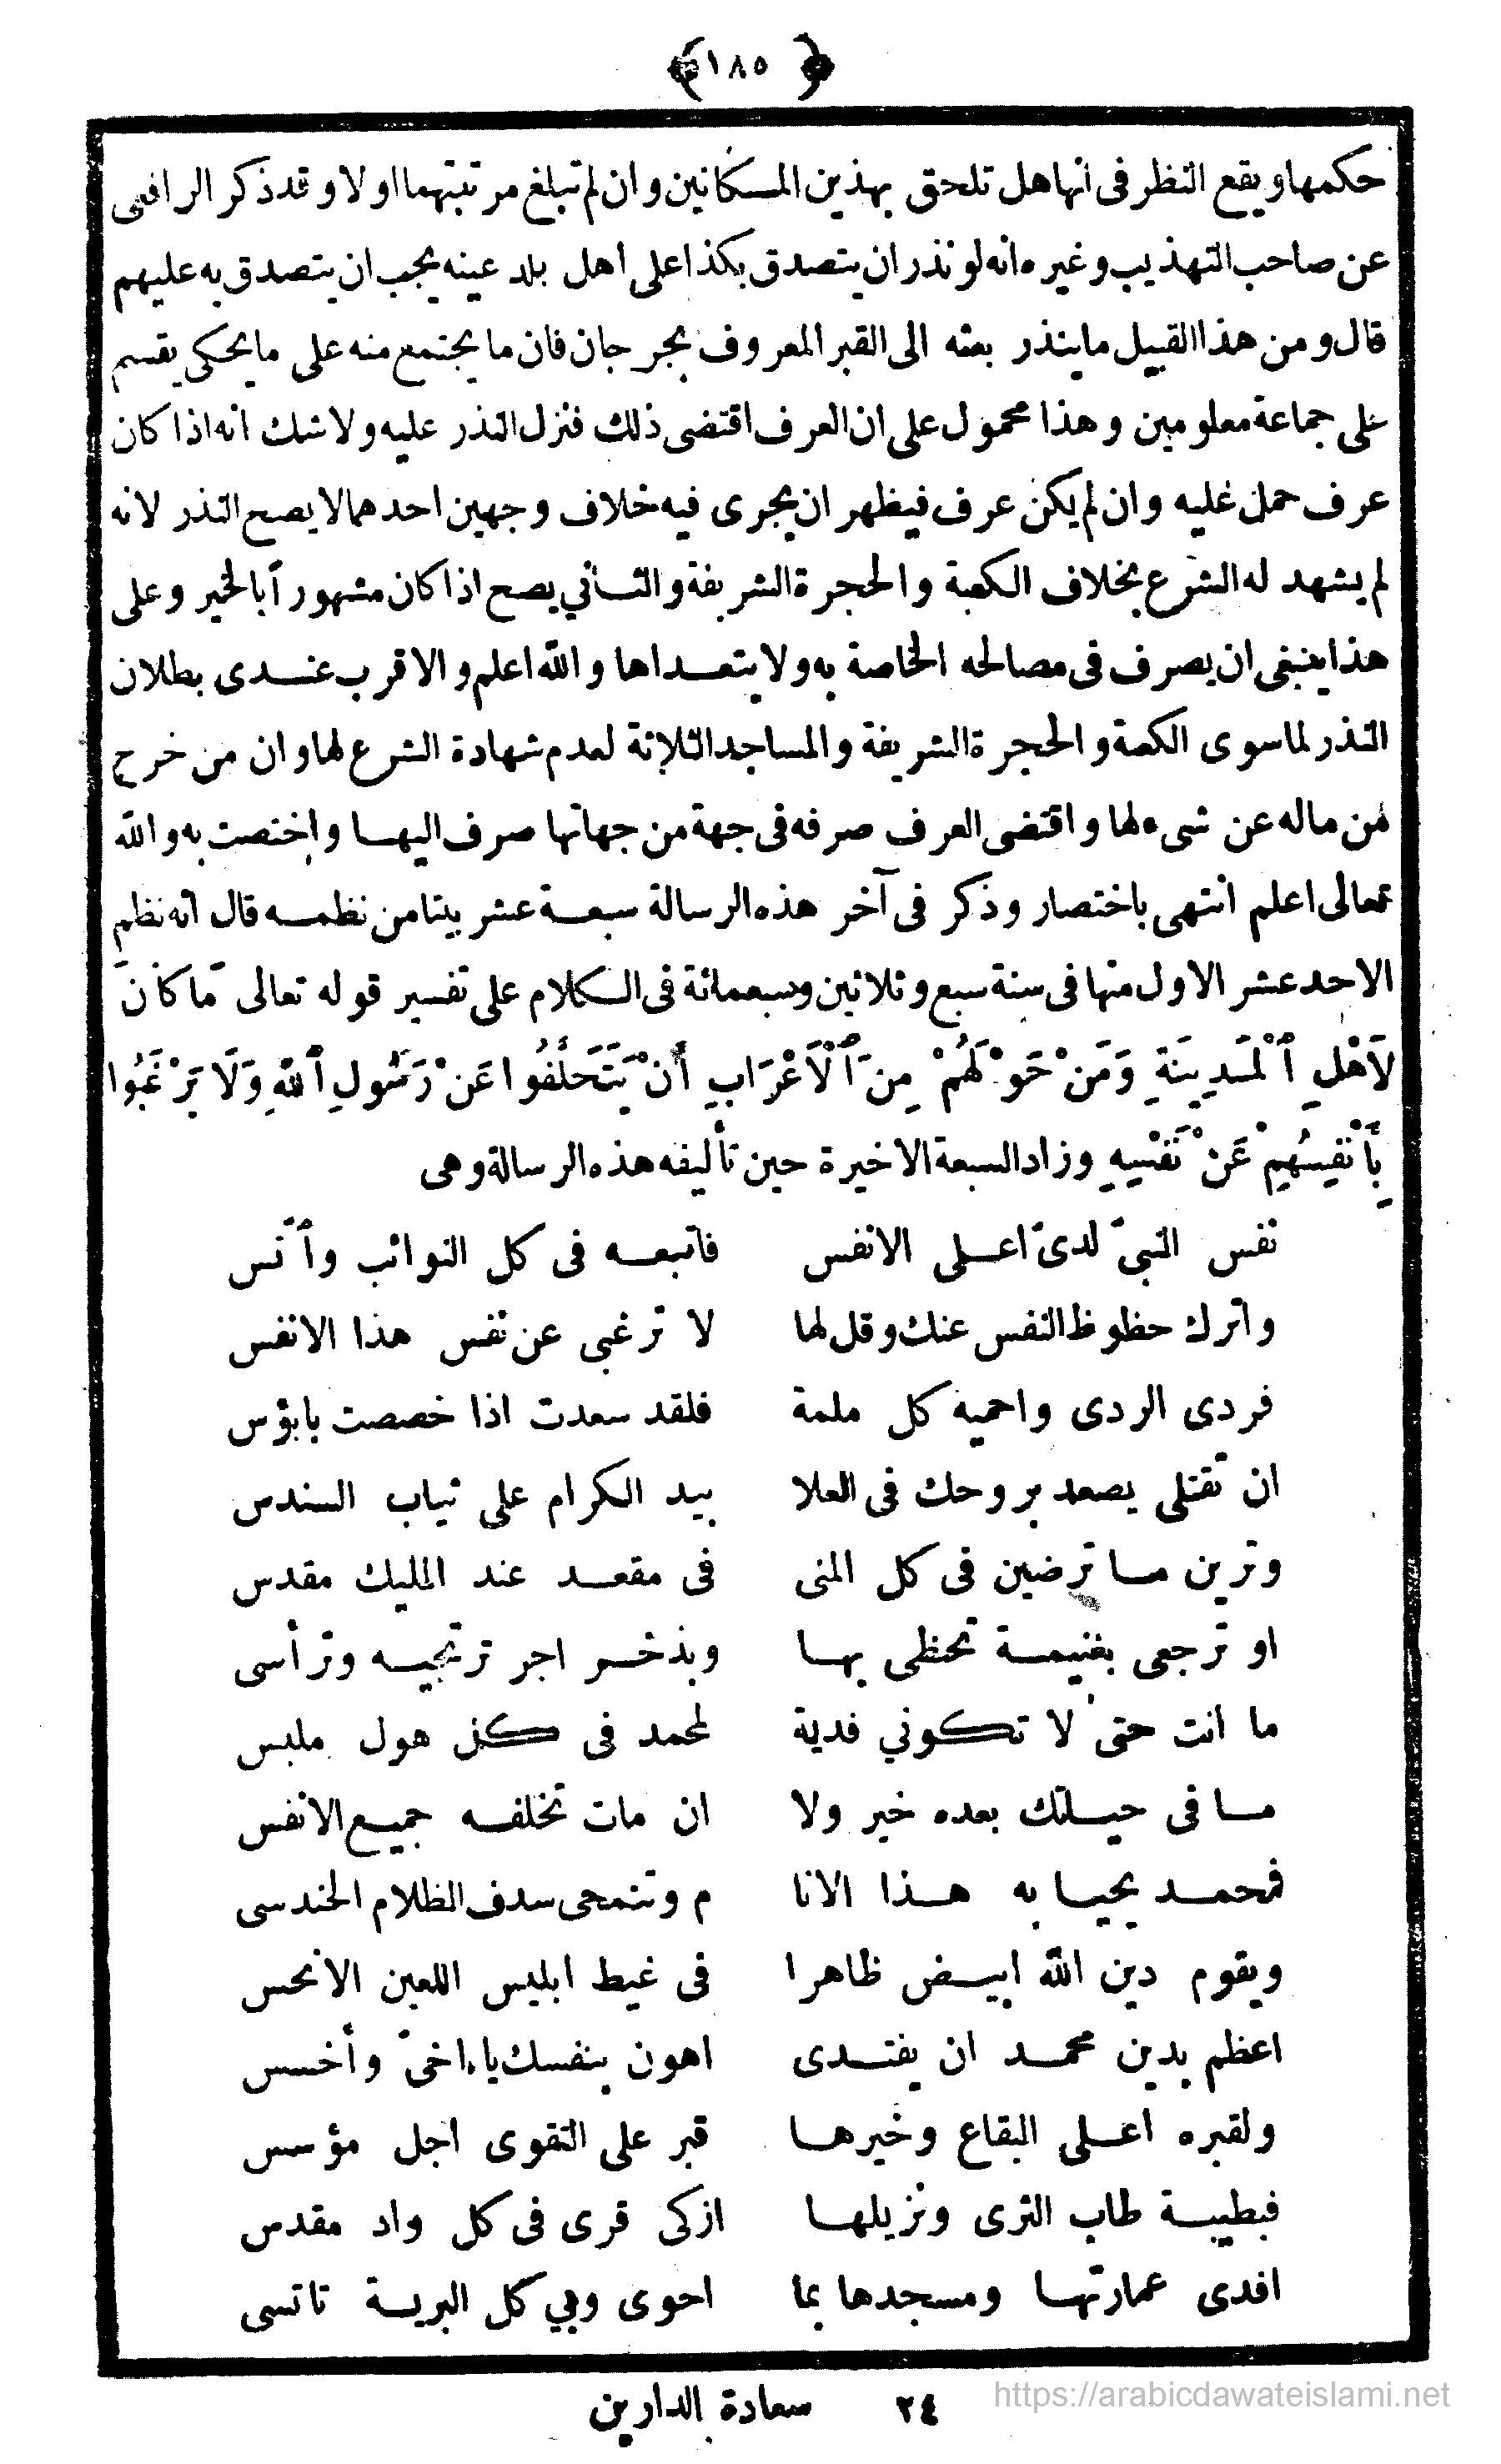 ﴿ ١٨٥ ﴾
حكمها ويقع النظر فى أنها هل تلحق بهذين المكانين وان لم تبلغ مرتبتهما اولا وقد ذكر الرافعى
عن صاحب التهذيب وغيره انه لو نذر ان يتصدق بكذا على اهل بلد عينه يجب ان يتصدق به عليهم
قال ومن هذا القبيل ما ينذر بعثه الى القبر المعروف بجرجان فان ما يجتمع منه على ما يحكى يقسم
على جماعة معلومين وهذا محمول على ان العرف اقتضى ذلك فنزل النذر عليه ولا شك انه اذا كان
عرف حمل عليه وان لم يكن عرف فيظهر ان يجرى فيه خلاف وجهين احدهما لا يصح النذر لانه
لم يشهد له الشرع بخلاف الكعبة والحجرة الشريفة والثاني يصح اذا كان مشهوراً بالخير وعلى
هذا ينبغى ان يصرف فى مصالحه الخاصة به ولا يتعداها والله اعلم والاقرب عندى بطلان
النذر لما سوى الكعبة والحجرة الشريفة والمساجد الثلاثة لعدم شهادة الشرع لها وان من خرج
من ماله عن شىء لها واقتضى العرف صرفه فى جهة من جهاتها صرف اليها واختصت به والله
تعالى اعلم انتهى باختصار وذكر فى آخر هذه الرسالة سبعة عشر بيتا من نظمه قال انه نظم
الاحد عشر الاول منها فى سنة سبع وثلاثين وسبعمائة فى الكلام على تفسير قوله تعالى مَا كَانَ
لِأَهْلِ ٱلْمَدِينَةِ وَمَنْ حَوْلَهُمْ مِنَ ٱلْأَعْرَابِ أَنْ يَتَخَلَّفُوا عَنْ رَسُولِ ٱللهِ وَلَا يَرْغَبُوا
بِأَنْفُسِهِمْ عَنْ نَفْسِهِ وزاد السبعة الاخيرة حين تأليفه هذه الرسالة وهى
نفس النبىّ لدىّ اعلى الانفس فاتبعه فى كل النوائب وأتس
واترك حظوظ النفس عنك وقل لها لا ترغبى عن نفس هذا الانفس
فردى الردى واحميه كل ملمة فلقد سعدت اذا خصصت بابؤس
ان تقتلى يصعد بروحك فى العلا بيد الكرام على ثياب السندس
وترين ما ترضين فى كل المنى فى مقعد عند المليك مقدس
او ترجعى بغنيمة تحظى بها وبذخر اجر ترتجيه وترأسى
ما انت حتى لا تكوني فدية لمحمد فى كل هول ملبس
ما فى حياتك بعده خير ولا ان مات تخلفه جميع الانفس
فمحمد يحيا به هذا الانا م وتنمحى سدف الظلام الحندسى
ويقوم دين الله ابيض ظاهرا فى غيط ابليس اللعين الانحس
اعظم بدين محمد ان يفتدى اهون بنفسك يا اخىّ وأخسس
ولقبره اعلى البقاع وخيرها قبر على التقوى اجل مؤسس
فبطيبة طاب الثرى ونزيلها ازكى قرى فى كل واد مقدس
افدى عمارتها ومسجدها بما احوى وبي كل البرية تاتسى
٢٤ سعادة الدارين
https://arabicdawateislami.net